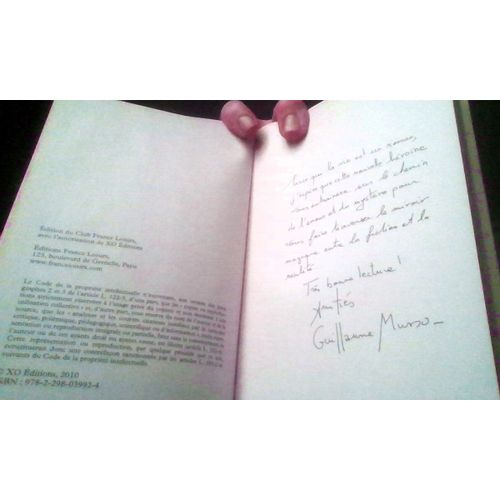 Édition du Club France Loisirs,
avec l'autorisation de XO Éditions
Éditions France Loisirs,
123, boulevard de Grenelle, Paris
www.franceloisirs.com
Le Code de la propriété intellectuelle n'autorisant, aux termes des
graphes 2 et 3 de l'article L. 122-5, d'une part, que les « copies ou
strictement réservées à l'usage privé du
utilisation collective » et, d'autre part, sous réserve du nom de l'auteur et de
source, que les « analyses et les courtes citations justifiées par le
critique, polémique, pédagogique, scientifique ou d'information », toute
sentation ou reproduction intégrale ou partielle, faite sans le consentement
l'auteur ou de ses ayants droit ou ayants cause, est illicite
Cette représentation ou reproduction, par quelque procédé que ce soit,
constituerait donc une contrefaçon sanctionnée par les articles L. 335-2 et
suivants du Code de la propriété intellectuelle.
© XO Éditions, 2010
ISBN : 978-2-298-03992-4
Parce que la vie est un roman,
j'espère que cette nouvelle héroïne
vous entraînera sur le chemin
de l'amour et du mystère pour
vous faire traverser le miroir
magique entre la fiction et la
réalité.
Très bonne lecture !
Amitiés
Guillaume Musso